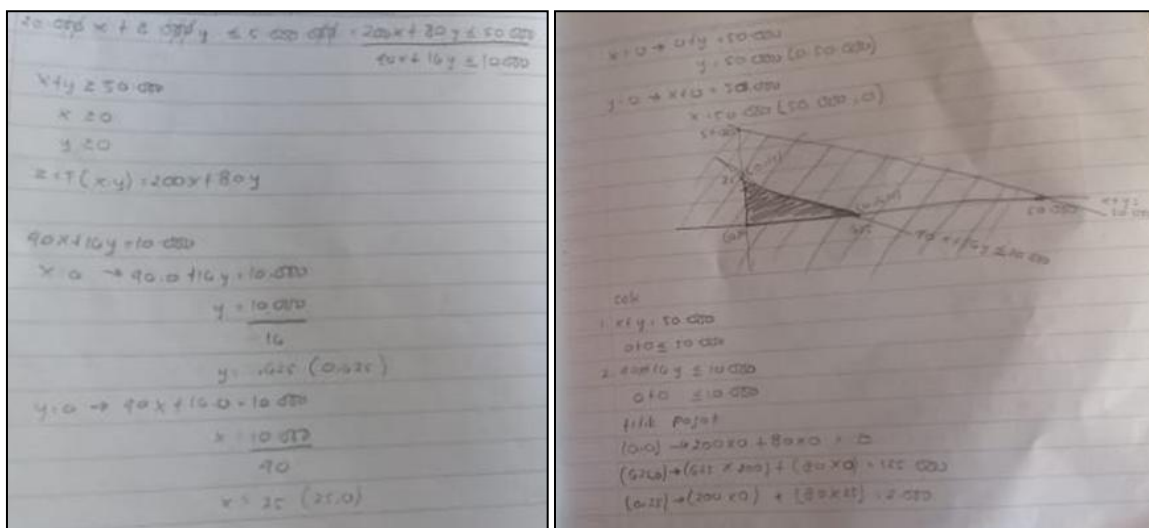 20.000 x + 8.000 y ≤ 5 000 000 = 200x + 80y ≤ 50 000
90x + 16y ≤ 10 000
x+y ≥ 50.000
x ≥ 0
y ≥ 0
(x.y) = 200x + 80y
90x + 16y = 10 000
x 0 → 90.0 + 16y = 10.000
y = 10 000
16
y = .625 (0.625)
y=0 → 90x + 16.0 = 10 000
x = 10 000
90
x = 25 (25,0)
x=0 → 0+y = 50 000
y = 50 000 (0 50 000)
y=0 → x+0 = 50.000
x = 50 000 (50 000,0)
50 000
x+y=
≤ 10 000
cek
1. x+y = 50 000
0+0 ≤ 50 000
2. 90x+16y ≤ 10 000
0+0 ≤ 10 000
titik pojok
(0,0) → 200x0 + 80x0 = 0
(625,0) → (625 x 200) + (80x0) = 125 000
(0.25) → (200 x0) + (80x25) = 2.000